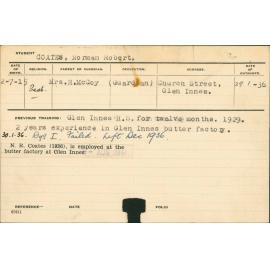 STUDENT
COATES, Norman Robert.
DATE OF BIRTH. RELIGION. PARENT OR GUARDIAN. OCCUPATION. ADDRESS. DATE OF ENTRY.
2-7-15 Pres. Mrs. H. McCoy (Guardian) Church Street, Glen Innes. 29 1-36
PREVIOUS TRAINING: Glen Innes H.S. for twelve months. 1929.
2 years experience in Glen Innes butter factory.
30.1.36. I. Failed. Left Dec 1936
N. R. Coates (1936), is employed at the
butter factory at Glen Innes
REFERENCE— DATE FOLIO